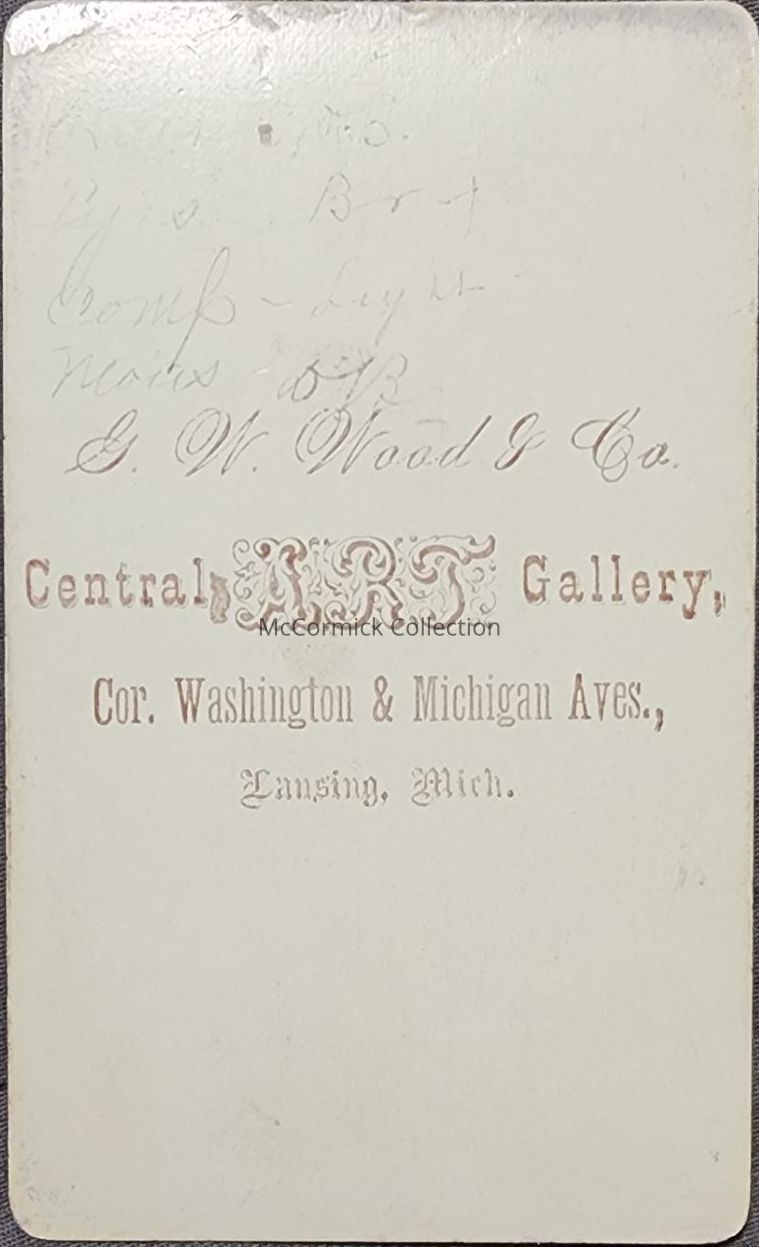 Comp - Light
G. W. Wood & Co.
Central ART Gallery,
McCormick Collection
Cor. Washington & Michigan Aves.,
Lansing, Mich.